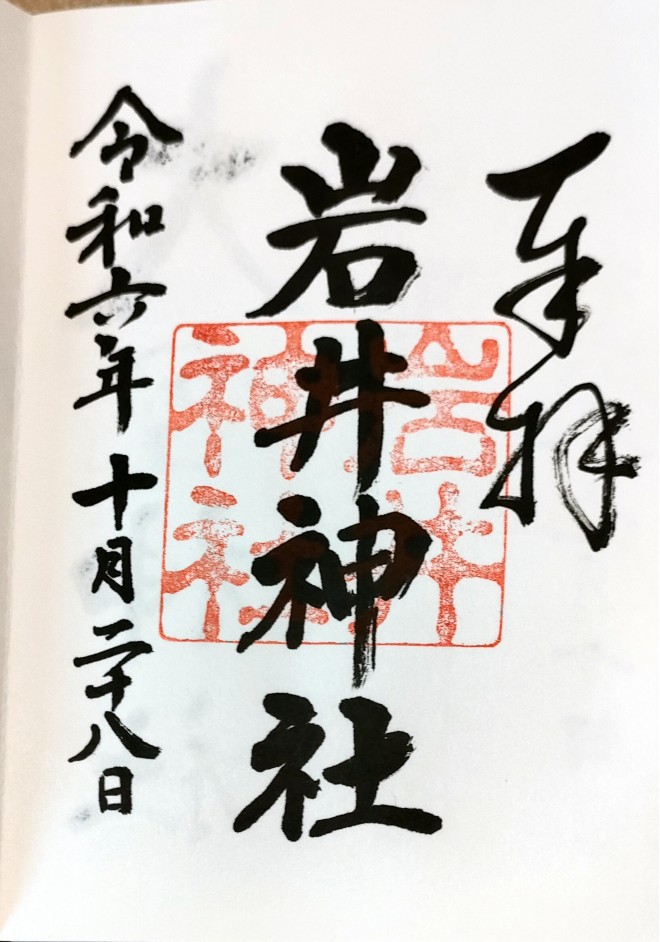 奉拝
岩井神社
令和六年十月二十八日
岩井
神社